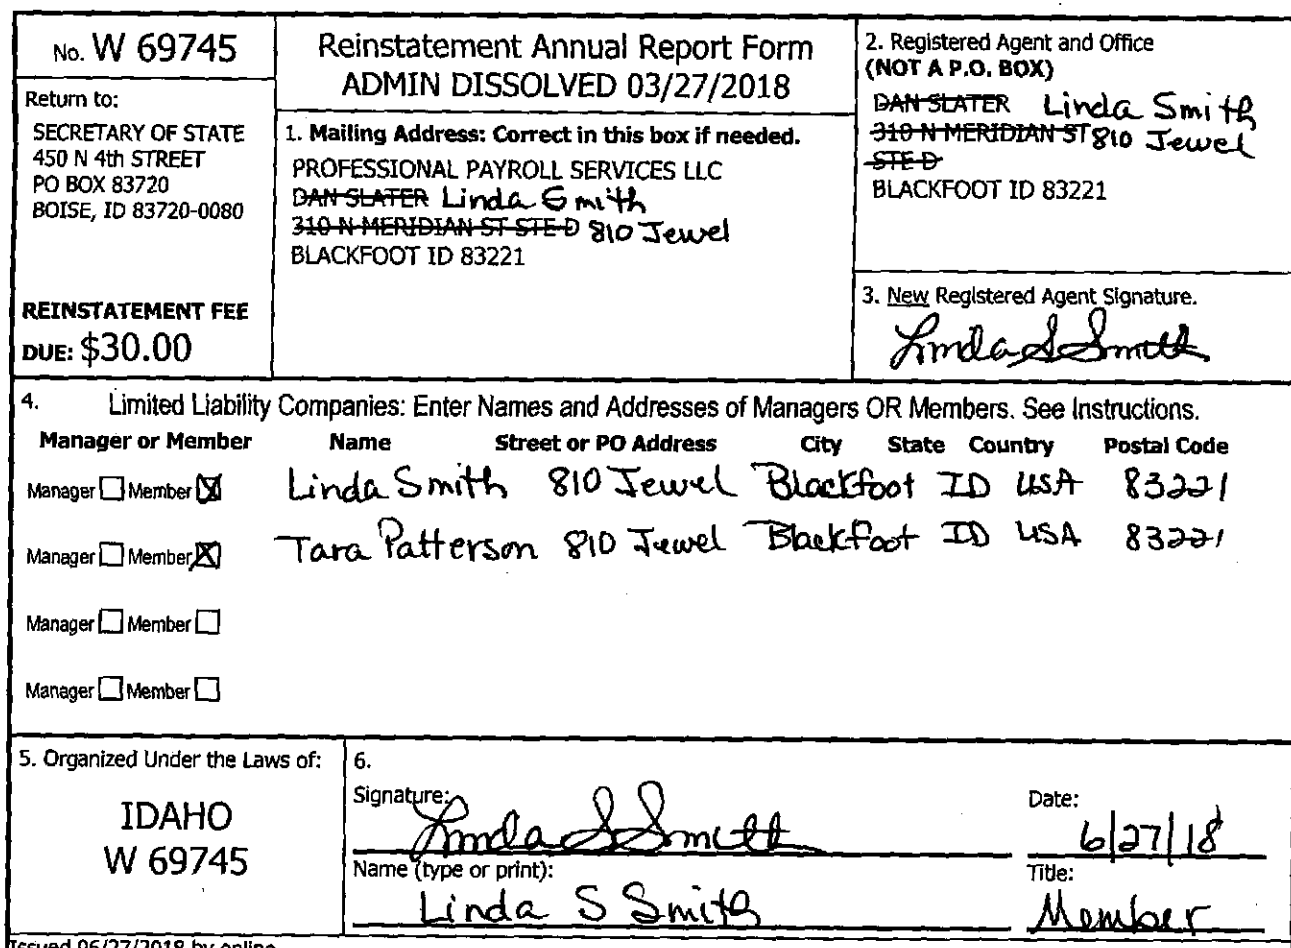 No. W 69745
Return to:
SECRETARY OF STATE
450 N 4th STREET
PO BOX 83720
BOISE, ID 83720-0080
REINSTATEMENT FEE
DUE: $30.00
Reinstatement Annual Report Form
ADMIN DISSOLVED 03/27/2018
1. Mailing Address: Correct in this box if needed.
PROFESSIONAL PAYROLL SERVICES LLC
DAN SLATER Linda Smith
310 N MERIDIAN ST STE D 810 Jewel
BLACKFOOT ID 83221
2. Registered Agent and Office
(NOT A P.O. BOX)
DAN SLATER Linda Smith
310 N MERIDIAN ST 810 Jewel
STE D
BLACKFOOT ID 83221
3. New Registered Agent Signature.
Linda S Smith
4. Limited Liability Companies: Enter Names and Addresses of Managers OR Members. See Instructions.
Manager or Member Name Street or PO Address City State Country Postal Code
Manager Member Linda Smith 810 Jewel Blackfoot ID USA 83221
Manager Member Tara Patterson 810 Jewel Blackfoot ID USA 83221
Manager Member
Manager Member
5. Organized Under the Laws of:
IDAHO
W 69745
6.
Signature: Linda S Smith
Date: 6/27/18
Name (type or print): Linda S Smith
Title: Member
Issued 06/27/2018 by online